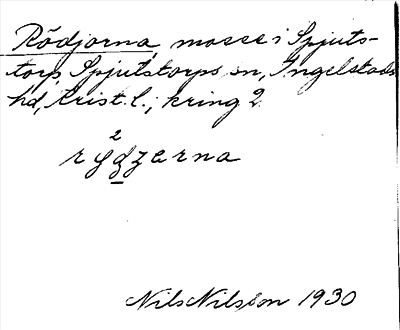 Rödjorna, mosse i Spjuts-
torp, Spjutstorps sn, Ingelstads
hd, Krist. l.; kring 2.
2
rydzerna
Nils Nilsson 1930